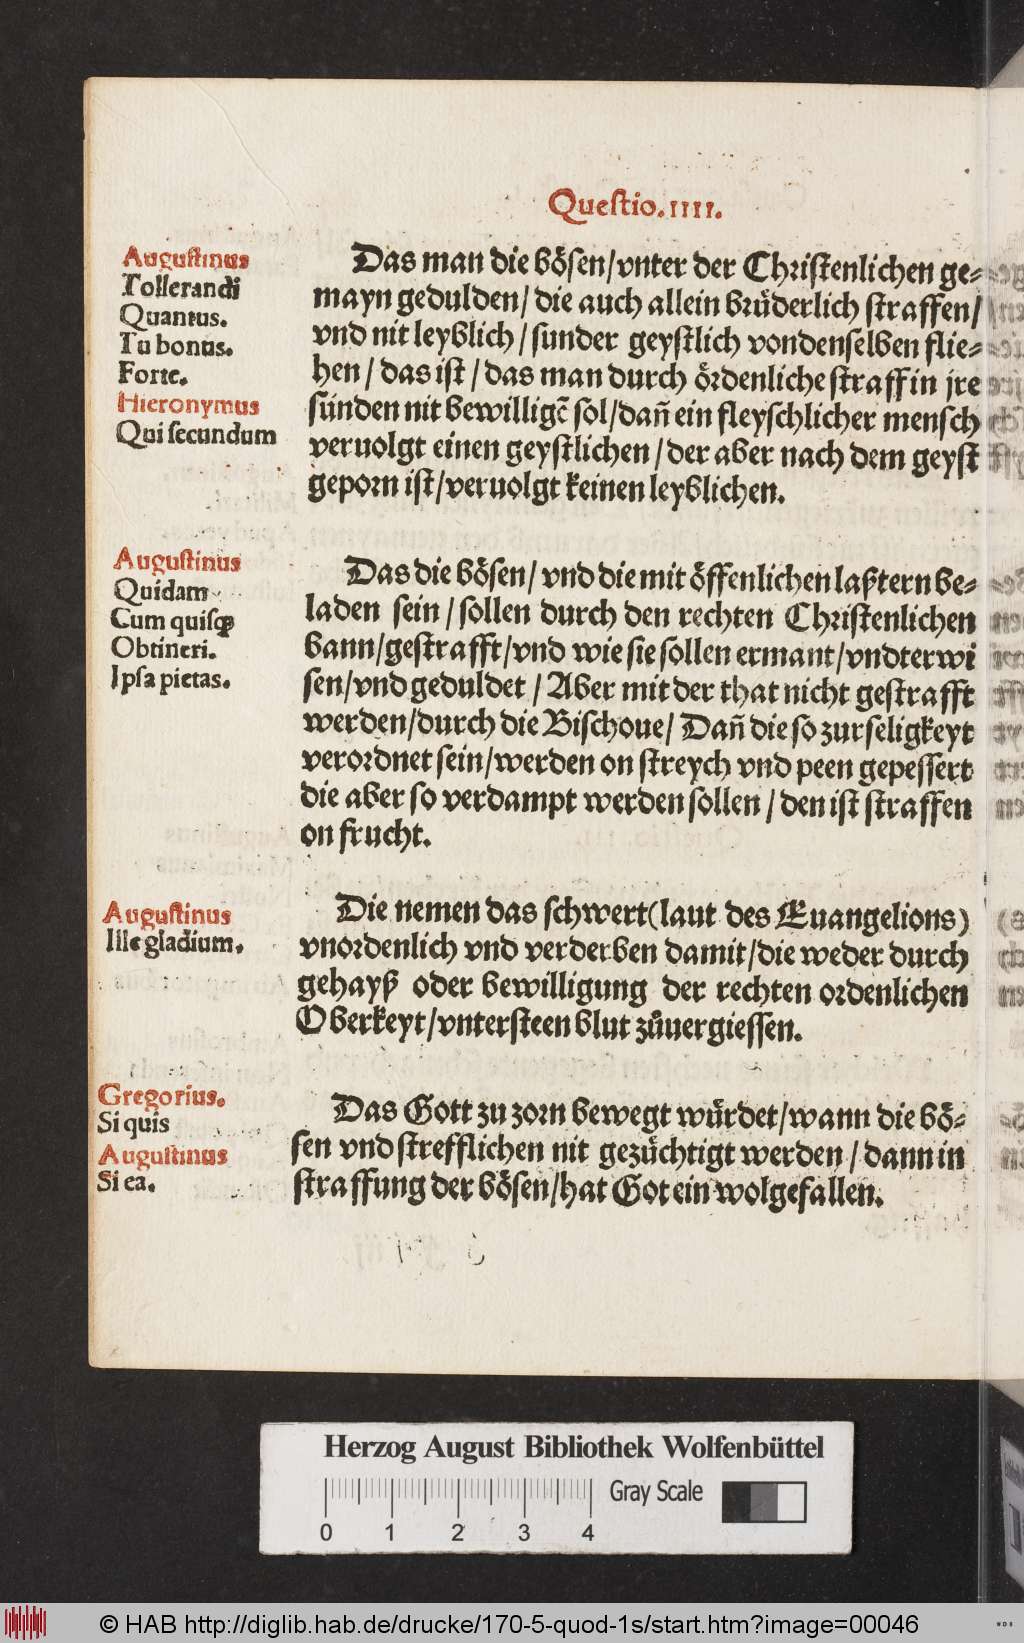 Questio. IIII.
Augustinus
Tollerandi
Quantus.
Tu bonus.
Forte.
Hieronymus
Qui secundum
Das man die bösen/vnter der Christenlichen ge-
mayn gedulden/ die auch allein brüderlich straffen/
vnd nit leyblich/ sunder geystlich vondenselben flie-
hen/ das ist/ das man durch ördenliche straff in jre
sünden nit bewilligē sol/dañ ein fleyschlicher mensch
veruolgt einen geystlichen/der aber nach dem geyst
geporn ist/veruolgt keinen leyblichen.
Augustinus
Quidam
Cum quisqꝫ
Obtineri.
Ipsa pietas.
Das die bösen/ vnd die mit öffenlichen laßtern be-
laden sein/ sollen durch den rechten Christenlichen
bann/gestrafft/vnd wie sie sollen ermant/vndterwi
sen/vnd geduldet/ Aber mit der that nicht gestrafft
werden/durch die Bischoue/ Dañ die so zur seligkeyt
verordnet sein/werden on streych vnd peen gepessert
die aber so verdampt werden sollen/ den ist straffen
on frucht.
Augustinus
Ille gladium.
Die nemen das schwert(laut des Euangelions)
vnordenlich vnd verderben damit/die weder durch
gehayß oder bewilligung der rechten ordenlichen
Oberkeyt/vntersteen blut zůuergiessen.
Gregorius.
Si quis
Augustinus
Si ea.
Das Gott zu zorn bewegt würdet/wann die bö-
sen vnd strefflichen nit gezüchtigt werden/ dann in
straffung der bösen/hat Got ein wolgefallen.
Herzog August Bibliothek Wolfenbüttel
Gray Scale
0 1 2 3 4
© HAB http://diglib.hab.de/drucke/170-5-quod-1s/start.htm?image=00046